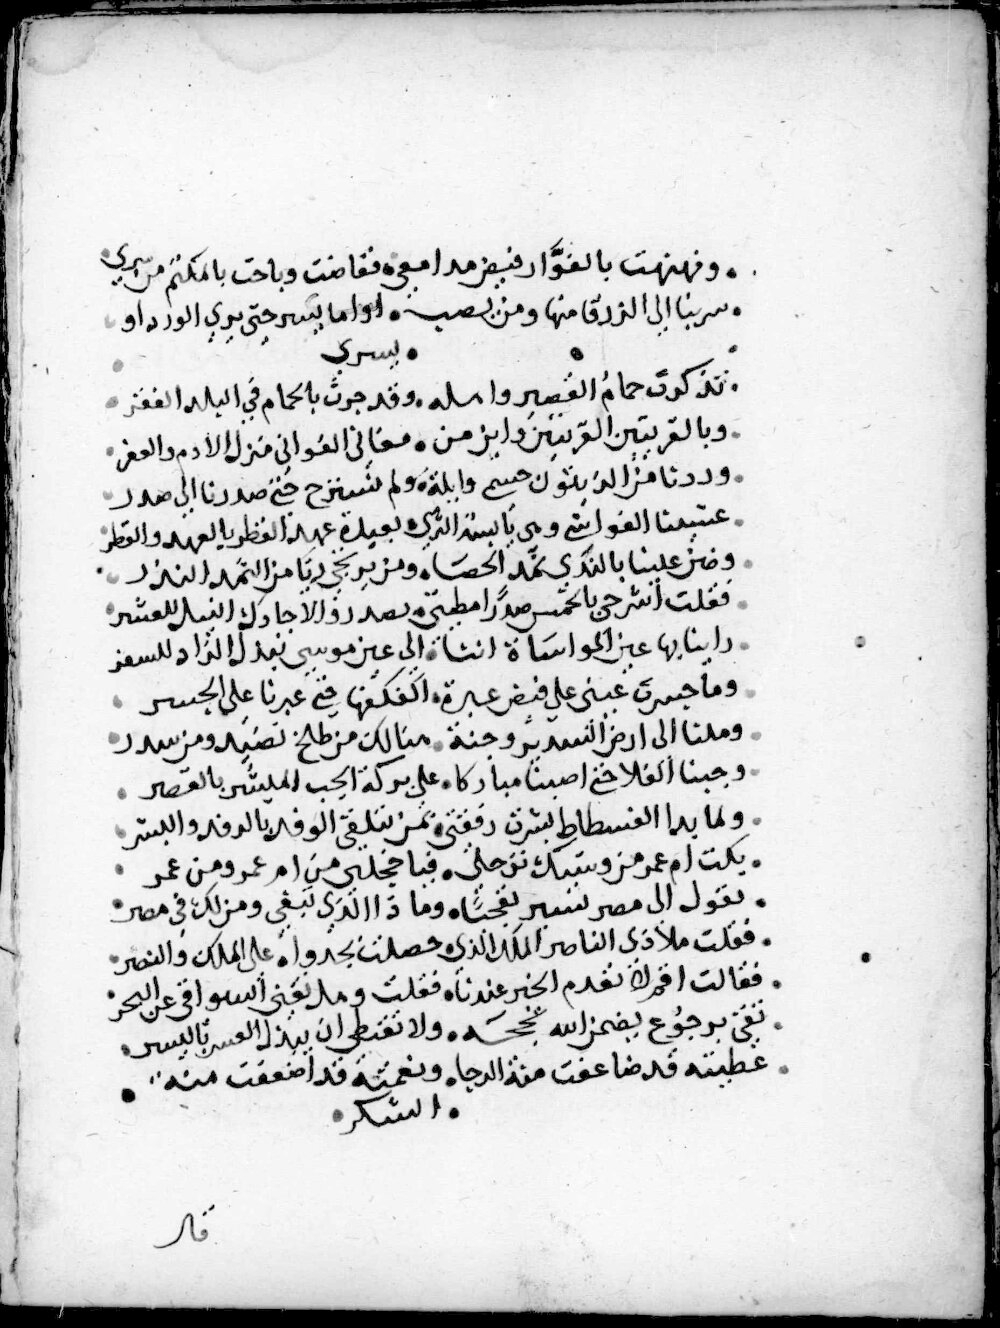 ونهنهت بالفوار فيض مدامعي ففاضت وباحت بالمكتم من سري
سرينا الى الزرقا منها ومن يصب اواما يسر حتى يري الورد او
يسري
تذكرت حمام القصير واهله وقد جرت بالحمام في البلد القفر
وبالقريتين القريتين واين من مغاني الغواني منزل الادم والعفر
وردنا من الزيتون حسمى وايلة ولم نسترح حتى صدرنا الى صدر
غشينا الغواشي وهي يابسة الثرى بعيدة عهد القطر بالعهد والقطر
وضن علينا بالندى ثمد الحصا ومن يرتجي ريا من الثمد النزر
فقلت اشرحي بالخمس صدرا مطيتي بصدر والا جادك النيل للعشر
راينا بها عين المواساة اننا الى عين موسى نبذل الزاد للسفر
وما جسرت عيني على فيض عبرة اكفكفها حتى عبرنا على الجسر
وملنا الى ارض السدير وجنة هنالك من طلح نضيد ومن سدر
وجبنا الفلا حتى اصبنا مباركا على بركة الجب المبشر بالقصر
ولما بدا الفسطاط بشرت رفقتي بمن يتلقى الوفد بالوفد والبشر
بكت ام عمرو من وشيك ترحلي فيا خجلتي من ام عمرو ومن عمرو
تقول الى مصر تسير تعجبا وماذا الذي تبغي ومن لك في مصر
فقلت ملاذي الناصر الملك الذي حصلت بجدواه على الملك والنصر
فقالت اقم لا تعدم الخير عندنا فقلت وهل تغني السواقي عن البحر
ثقي برجوع يضمن الله نجحه ولا تقنطي ان يبذل العسر باليسر
عطيته قد ضاعفت منة الرجا ونعمته قد اضعفت منه
الشكر
قال